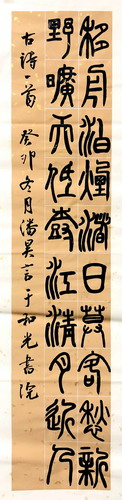 移舟泊烟渚日暮客愁新
野旷天低树江清月近人
古诗一首 癸卯冬月潘昊言于和光书院